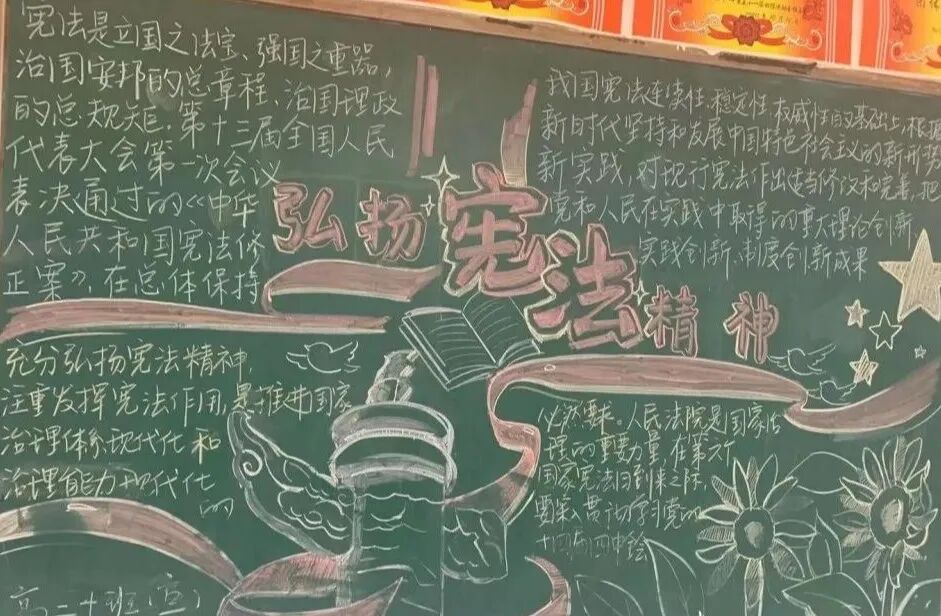 宪法是立国之法宝、强国之重器，
治国安邦的总章程、治国理政
的总规矩。第十三届全国人民
代表大会第一次会议
表决通过的《中华
人民共和国宪法修
正案》，在总体保持
我国宪法连续性、稳定性、权威性的基础上，根据
新时代坚持和发展中国特色社会主义的新形势
新实践，对现行宪法作出适当修改和完善，把
党和人民在实践中取得的重大理论创新
实践创新、制度创新成果
弘扬宪法精神
充分弘扬宪法精神
注重发挥宪法作用，是推进国家
治理体系现代化和
治理能力现代化
的
必然要求。人民法院是国家治
理的重要力量，在第六个
国家宪法日到来之际，
要深入贯彻学习党的
十四中
高一十班(宣)